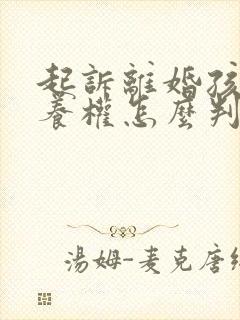 起訴離婚孩
養權怎麼判
湯姆-麦克唐